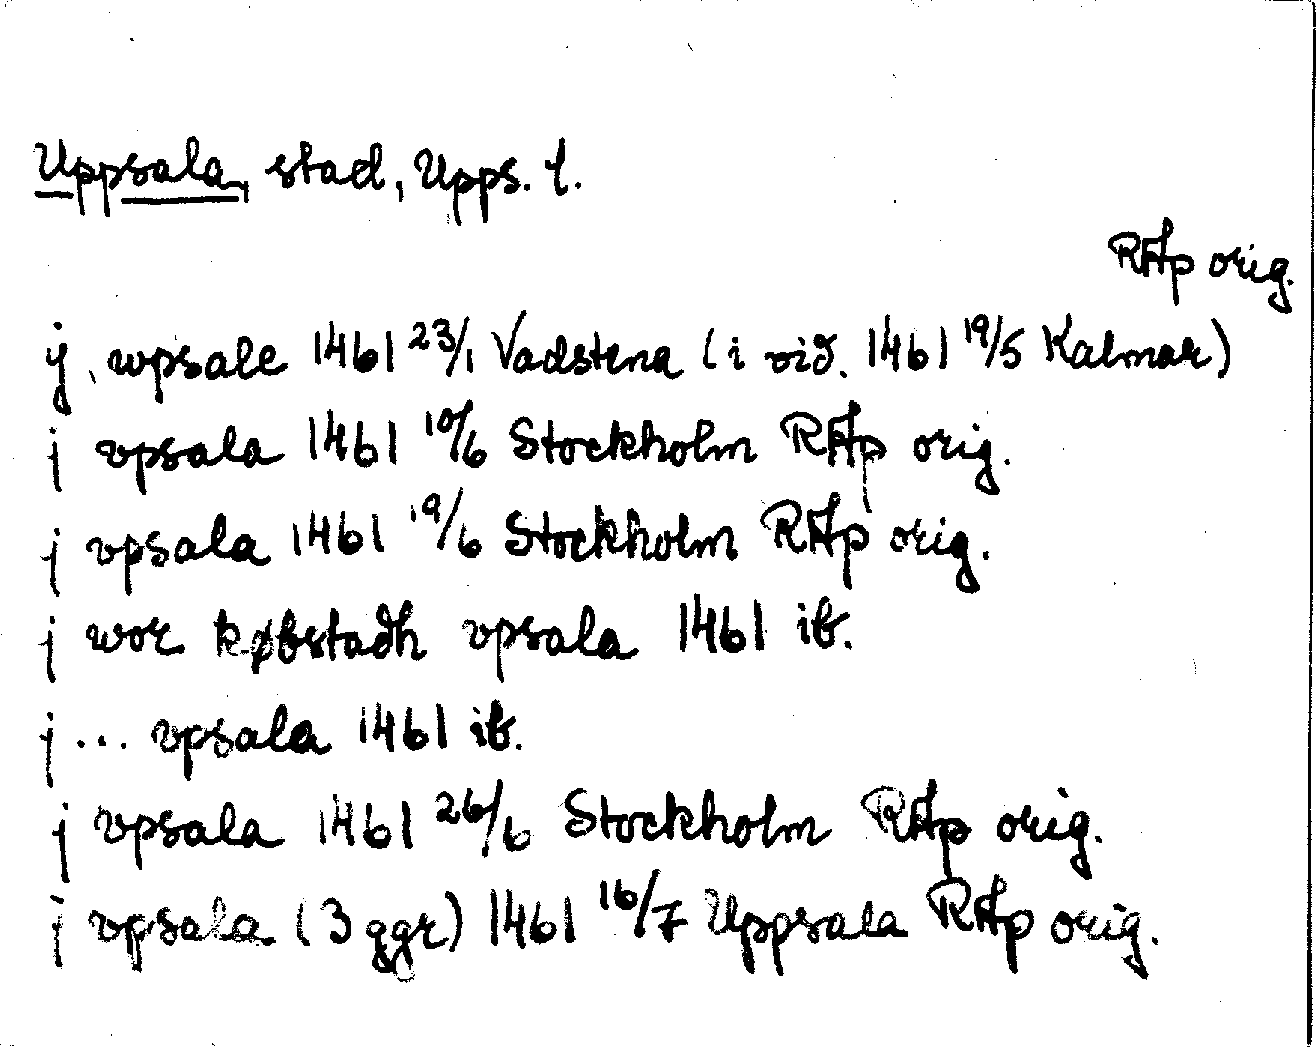 Uppsala, stad, Upps. l.
RAp orig.
y wpsale 1461 23/1 Vadstena (i vid. 1461 19/5 Kalmar)
j vpsala 1461 10/6 Stockholm RAp orig.
j vpsala 1461 19/6 Stockholm RAp orig.
j wor købstadh vpsala 1461 ib.
j ... vpsala 1461 ib.
j vpsala 1461 26/6 Stockholm RAp orig.
j vpsala (3 ggr) 1461 16/7 Uppsala RAp orig.